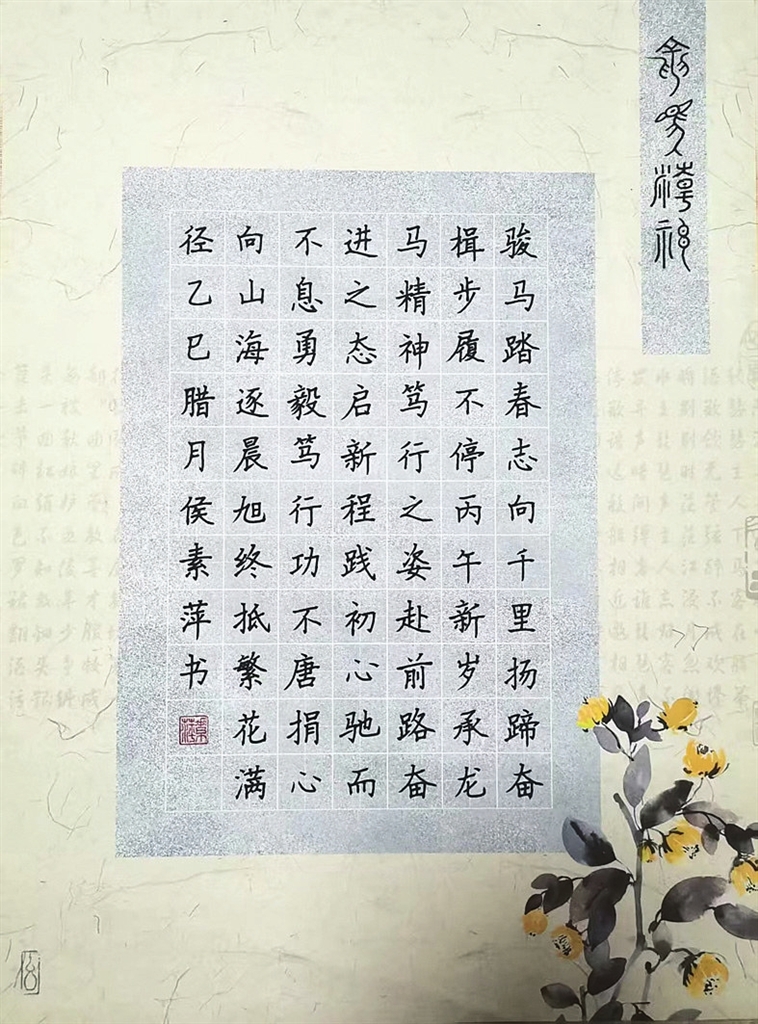 龙马精神
骏马踏春志向千里扬蹄奋
楫步履不停丙午新岁承龙
马精神笃行之姿赴前路奋
进之态启新程践初心驰而
不息勇毅笃行功不唐捐心
向山海逐晨旭终抵繁花满
径乙巳腊月侯素萍书